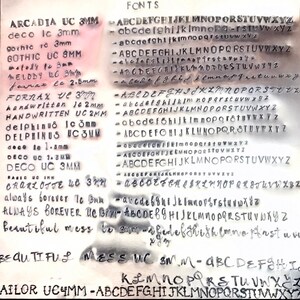 FONTS
ARCADIA UC 3MM - ABCDEFGHIJKLMNOPQRSTUVWXYZ
deco lc 3mm - abcdefghijklmnopqrstuvwxyz
gothic lc 3mm - abcdefghijklmnopqrstuvwxyz
GOTHIC UC 3MM - ABCDEFGHIJKLMNOPQRSTUVWXYZ
melody lc 3mm - abcdefghijklmnopqrstuvwxyz
MELODY UC 3MM - ABCDEFGHIJKLMNOPQRSTUVWXYZ
FORNAX UC 3MM - ABCDEFGHIJKLMNOPQRSTUVWXYZ
handwritten lc 2mm - abcdefghijklmnopqrstuvwxyz
HANDWRITTEN UC 2MM - ABCDEFGHIJKLMNOPQRSTUVWXYZ
delphinus lc 3mm - abcdefghijklmnopqrstuvwxyz
DELPHINUS UC 3MM - ABCDEFGHIJKLMNOPQRSTUVWXYZ
deco lc
deco uc
DECO UC 3MM - ABCDEFGHIJKLMNOPQRSTUVWXYZ
CHARLOTTE UC 3MM - ABCDEFGHIJKLMNOPQRSTUVWXYZ
always forever lc 3mm - abcdefghijklmnopqrstuvwxyz
ALWAYS FOREVER UC 3MM - ABCDEFGHIJKLMNOPQRSTUVWXYZ
Beautiful mess lc 3m
BEAUTIFUL MESS UC 3M M - ABC DEFGHI
KLMNOPQRSTUVWXYZ
AILOR UC 4MM - ABCDEFGHIJKLMNOPQRSTUVWX YZ